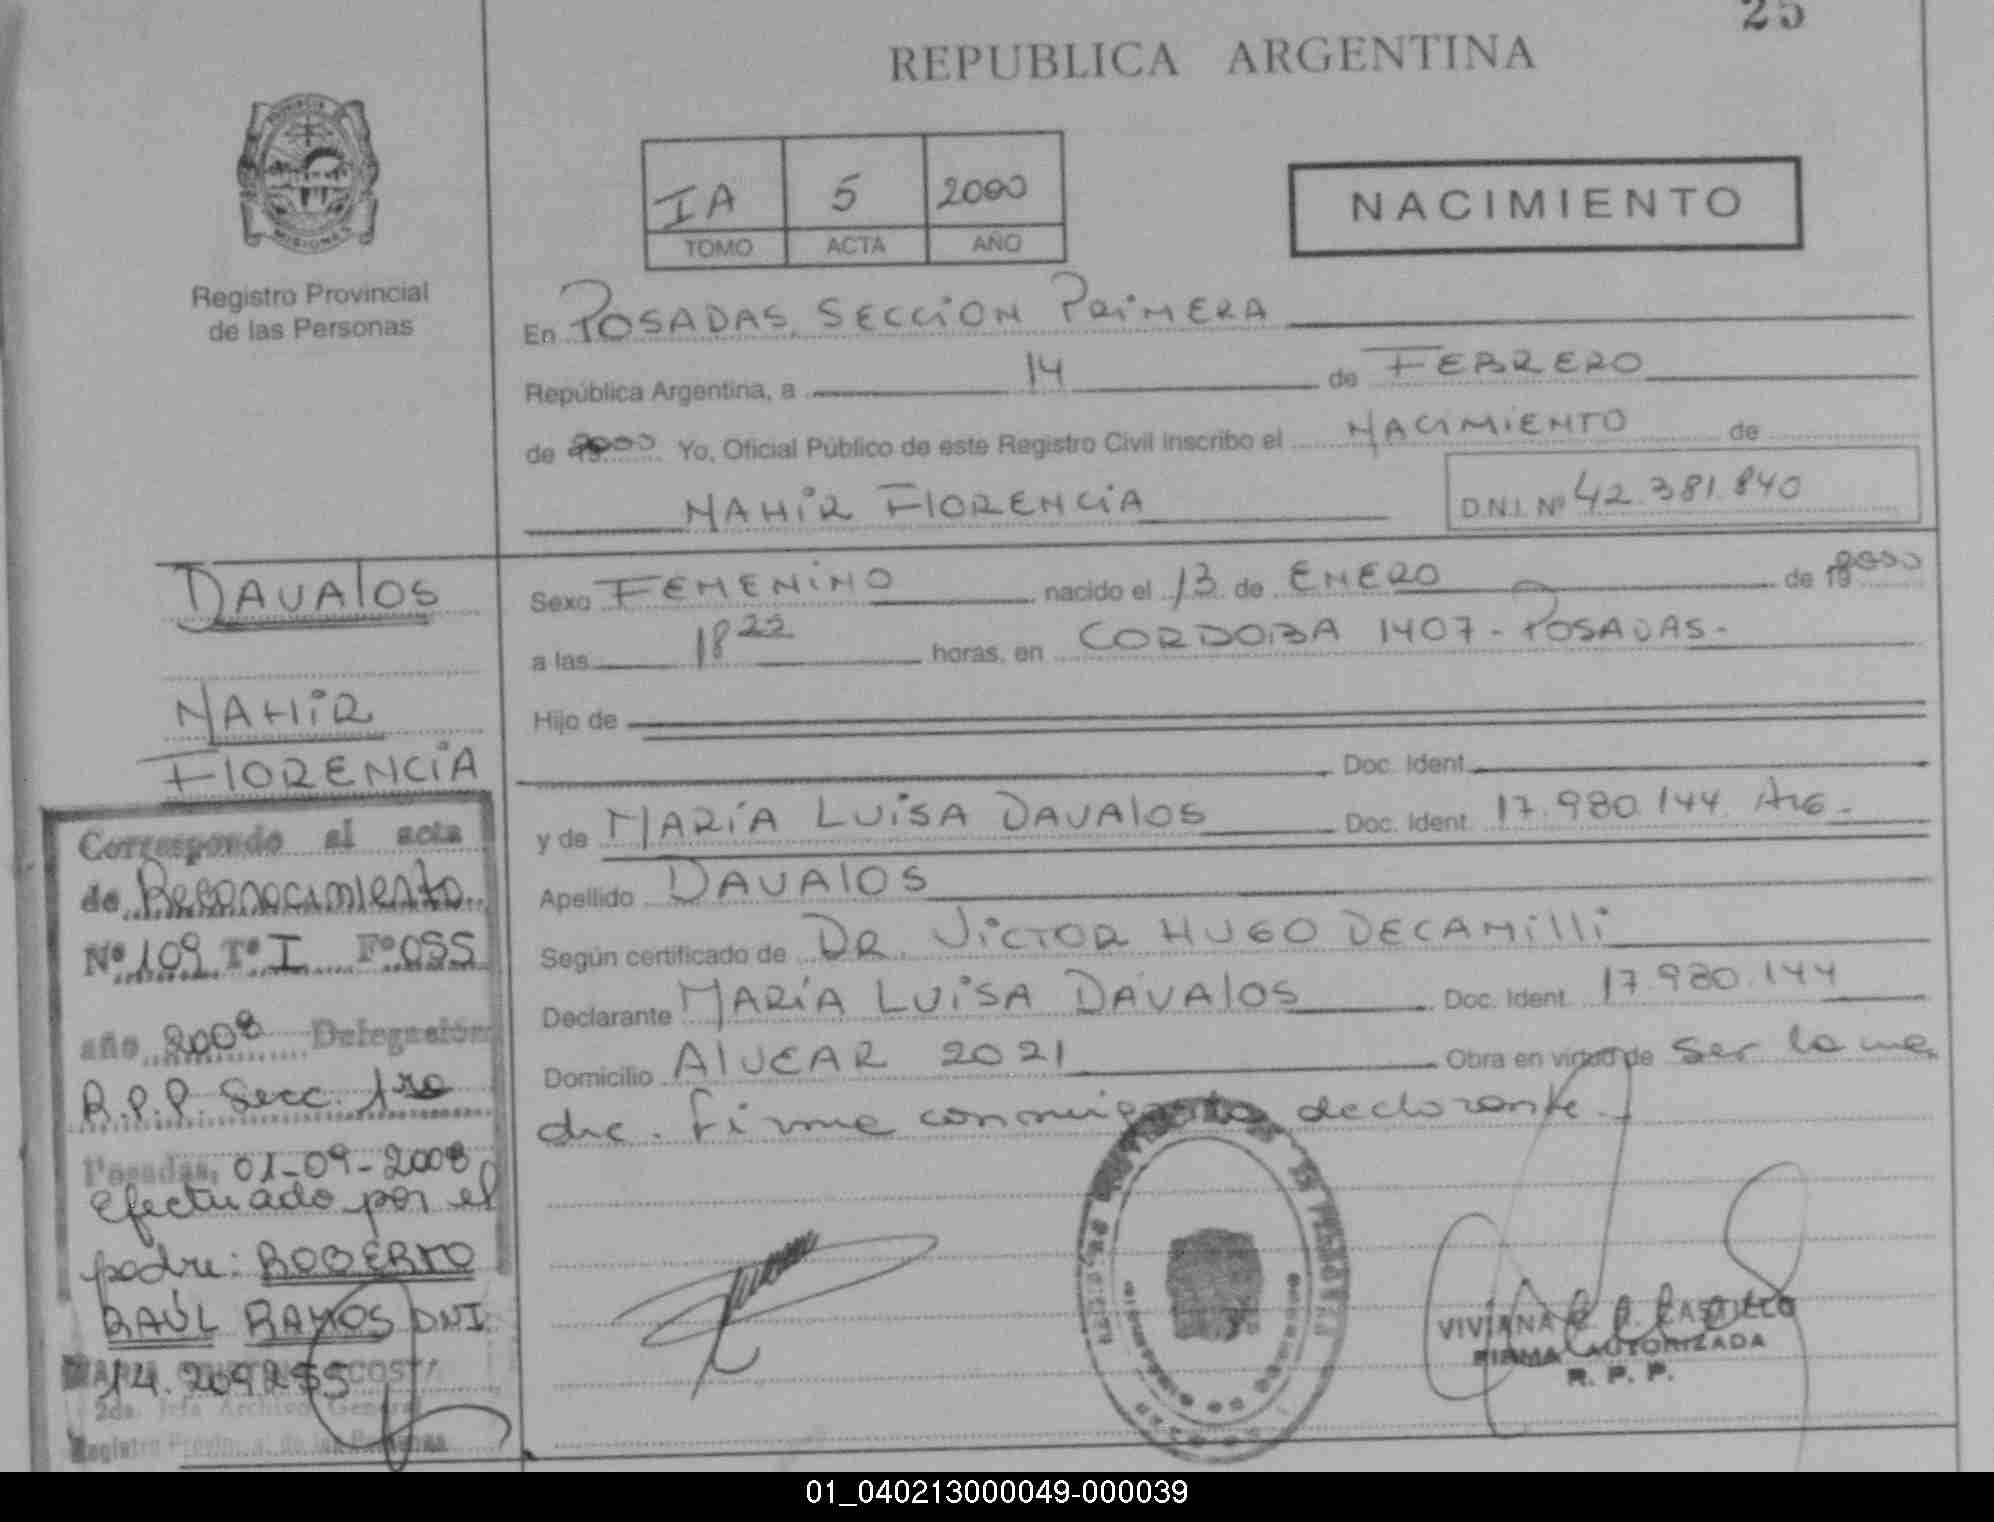 25
REPUBLICA ARGENTINA
PROVINCIA
MISIONES
Registro Provincial
de las Personas
IA 5 2000
TOMO ACTA AÑO
NACIMIENTO
En POSADAS, SECCION PRIMERA
República Argentina, a 14 de FEBRERO
de 2000 Yo, Oficial Público de este Registro Civil inscribo el NACIMIENTO de
NAHIR FLORENCIA
D.N.I. Nº 42.381.840
DAVALOS
NAHIR
FLORENCIA
Sexo FEMENINO nacido el 13 de ENERO de 2000
a las 18 22 horas, en CORDOBA 1407 - POSADAS -
Hijo de
Doc. Ident.
y de MARÍA LUISA DAVALOS Doc. Ident. 17.980.144 ARG -
Apellido DAVALOS
Según certificado de DR. VICTOR HUGO DECAMILLI
Declarante MARÍA LUISA DAVALOS Doc. Ident. 17.980.144
Domicilio ALVEAR 2021 Obra en virtud de ser la ma
dre. Firma conmigo la declarante.
Corresponde al acta
de Reconocimiento
Nº 109 Tº I Fº 055
año 2008 Delegación
R.P.P. Secc. 1ra
Posadas, 01-09-2008
efectuado por el
padre: ROBERTO
RAÚL RAMOS DNI
14.209.255
2da. Jefa Archivo General
Registro Provincial de las Personas
VIVIANA CASTILLO
FIRMA AUTORIZADA
R. P. P.
01_040213000049-000039